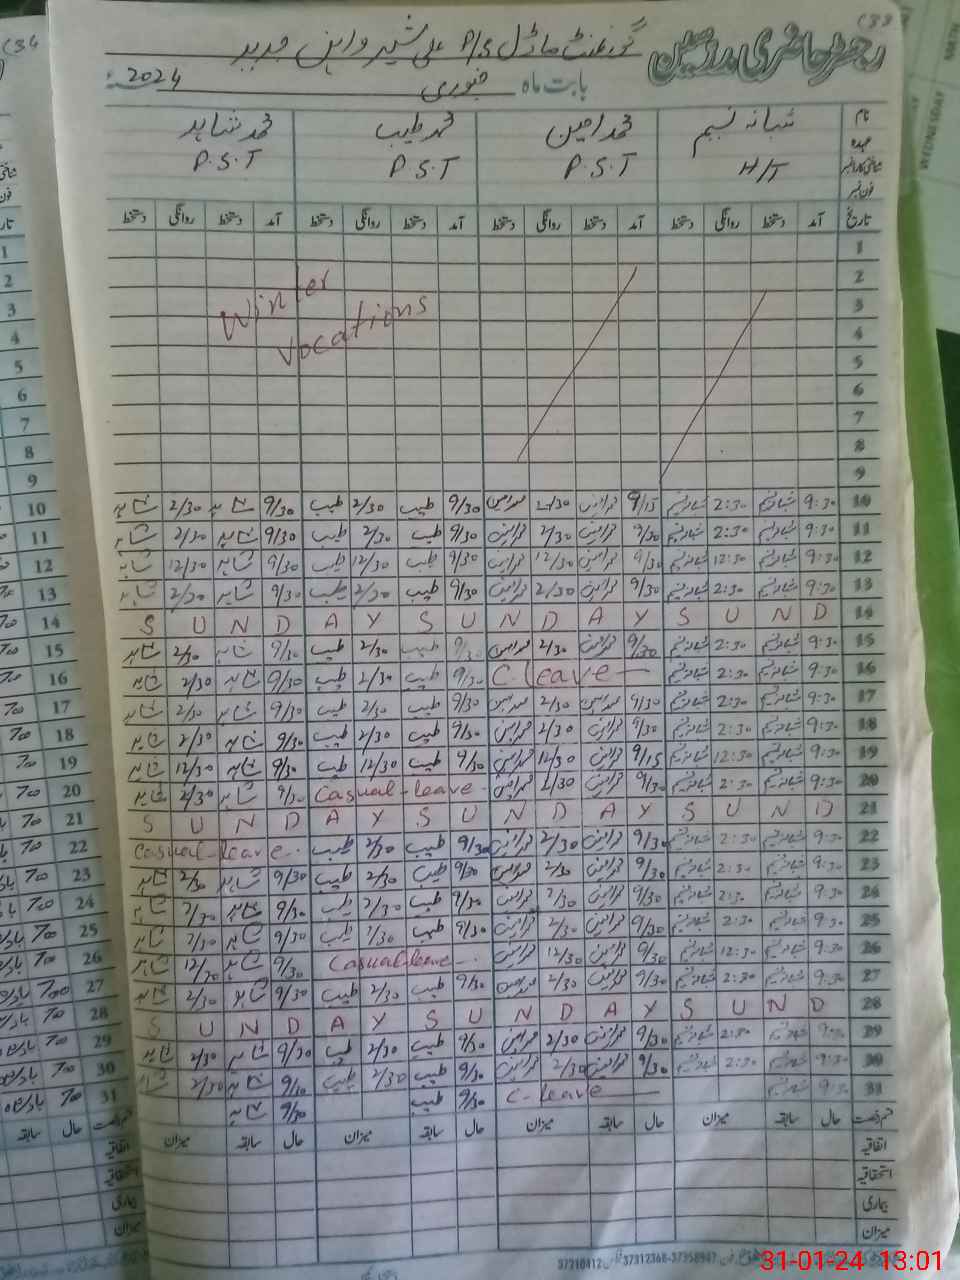 (33
رجسٹر حاضری مدرسین
گورنمنٹ ماڈل P/S علی شیر واہن جدید
بابت ماہ جنوری 2024
نام شبانہ نسیم محمد امین محمد طیب محمد شاہد
عہدہ H/T P.S.T P.S.T P.S.T
شناختی کارڈ نمبر
فون نمبر
تاریخ آمد دستخط روانگی دستخط آمد دستخط روانگی دستخط آمد دستخط روانگی دستخط آمد دستخط روانگی دستخط
1
2
Winter
3
Vocations
4
5
6
7
8
9
10 9:30 شبانہ نسیم 2:30 شبانہ نسیم 9/15 محمد امین 2/30 محمد امین 9/30 طیب 2/30 طیب 9/30 شاہد 2/30 شاہد
11 9:30 شبانہ نسیم 2:30 شبانہ نسیم 9/30 محمد امین 2/30 محمد امین 9/30 طیب 2/30 طیب 9/30 شاہد 2/30 شاہد
12 9:30 شبانہ نسیم 12:30 شبانہ نسیم 9/30 محمد امین 12/30 محمد امین 9/30 طیب 12/30 طیب 9/30 شاہد 12/30 شاہد
13 9:30 شبانہ نسیم 2:30 شبانہ نسیم 9/30 محمد امین 2/30 محمد امین 9/30 طیب 2/30 طیب 9/30 شاہد 2/30 شاہد
S U N D A Y S U N D A Y S U N D 14
15 9:30 شبانہ نسیم 2:30 شبانہ نسیم 9/30 محمد امین 2/30 محمد امین 9/30 طیب 2/30 طیب 9/30 شاہد 2/30 شاہد
16 9:30 شبانہ نسیم 2:30 شبانہ نسیم C. leave 9/30 طیب 2/30 طیب 9/30 شاہد 2/30 شاہد
17 9:30 شبانہ نسیم 2:30 شبانہ نسیم 9/30 محمد امین 2/30 محمد امین 9/30 طیب 2/30 طیب 9/30 شاہد 2/30 شاہد
18 9:30 شبانہ نسیم 2:30 شبانہ نسیم 9/30 محمد امین 2/30 محمد امین 9/30 طیب 2/30 طیب 9/30 شاہد 2/30 شاہد
19 9:30 شبانہ نسیم 12:30 شبانہ نسیم 9/15 محمد امین 12/30 محمد امین 9/30 طیب 12/30 طیب 9/30 شاہد 12/30 شاہد
20 9:30 شبانہ نسیم 2:30 شبانہ نسیم 9/30 محمد امین 2/30 محمد امین Casual-leave 9/30 شاہد 2/30 شاہد
S U N D A Y S U N D A Y S U N D 21
22 9:30 شبانہ نسیم 2:30 شبانہ نسیم 9/30 محمد امین 2/30 محمد امین 9/30 طیب 2/30 طیب Casual-leave
23 9:30 شبانہ نسیم 2:30 شبانہ نسیم 9/30 محمد امین 2/30 محمد امین 9/30 طیب 2/30 طیب 9/30 شاہد 2/30 شاہد
24 9:30 شبانہ نسیم 2:30 شبانہ نسیم 9/30 محمد امین 2/30 محمد امین 9/30 طیب 2/30 طیب 9/30 شاہد 2/30 شاہد
25 9:30 شبانہ نسیم 2:30 شبانہ نسیم 9/30 محمد امین 2/30 محمد امین 9/30 طیب 2/30 طیب 9/30 شاہد 2/30 شاہد
26 9:30 شبانہ نسیم 12:30 شبانہ نسیم 9/30 محمد امین 12/30 محمد امین Casual leave 9/30 شاہد 12/30 شاہد
27 9:30 شبانہ نسیم 2:30 شبانہ نسیم 9/30 محمد امین 2/30 محمد امین 9/30 طیب 2/30 طیب 9/30 شاہد 2/30 شاہد
S U N D A Y S U N D A Y S U N D 28
29 9:30 شبانہ نسیم 2:30 شبانہ نسیم 9/30 محمد امین 2/30 محمد امین 9/30 طیب 2/30 طیب 9/30 شاہد 2/30 شاہد
30 9:30 شبانہ نسیم 2:30 شبانہ نسیم 9/30 محمد امین 2/30 محمد امین 9/30 طیب 2/30 طیب 9/30 شاہد 2/30 شاہد
31 9:30 شبانہ نسیم C-leave 9/30 طیب 9/30 شاہد
قسم رخصت حال سابقہ میزان حال سابقہ میزان حال سابقہ میزان حال سابقہ میزان
اتفاقیہ
استحقاقیہ
بیماری
میزان
37310412 37312368-37358947
31-01-24 13:01
(34
WEDNESDAY